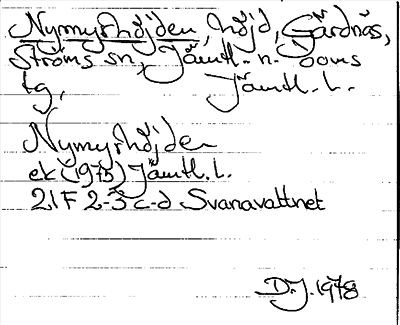 Nymyrhöjden, höjd, Gärdnäs,
Ströms sn, Jämtl. n. doms
tg, Jämtl. l.
Nymyrhöjden
ek (1975) Jämtl. l.
21F 2-3 c-d Svanavattnet
D.J. 1978